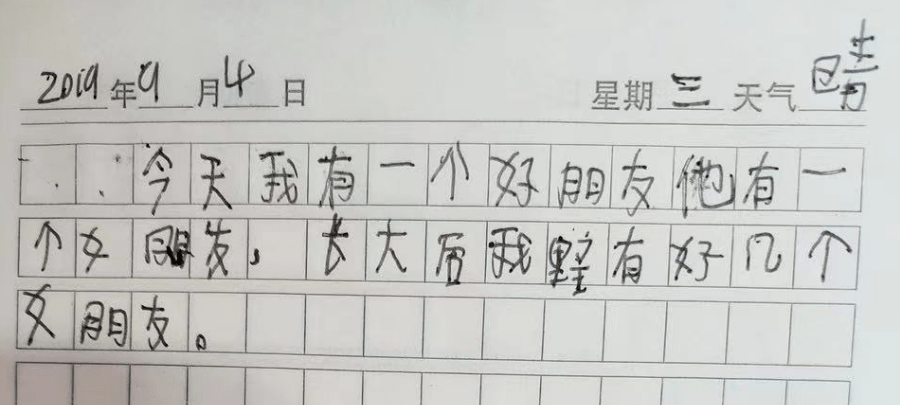 2019年9月4日 星期三 天气晴
今天我有一个好朋友他有一
个女朋友，长大后我要有好几个
女朋友。